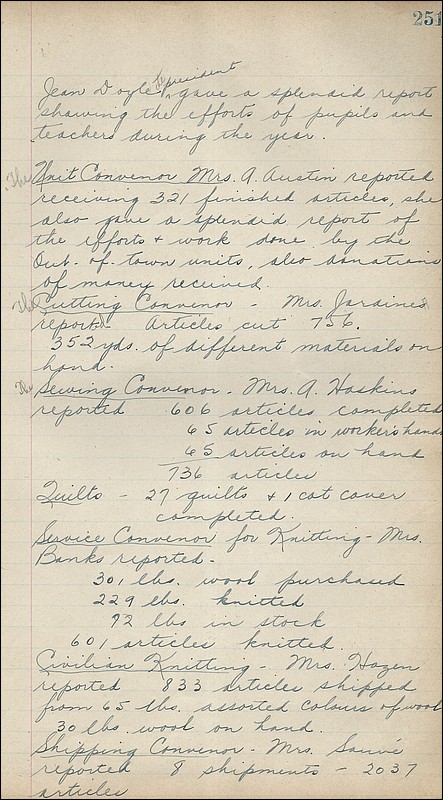 251
Jean Doyle the president gave a splendid report
showing the efforts of pupils and
teachers during the year.
The Unit Convenor Mrs. A. Austin reported
receiving 321 finished articles, she
also gave a splendid report of
the efforts + work done by the
Out-of-town units, also donations
of money received.
The Cutting Convenor - Mrs. Jardine's
report - Articles cut 756.
352 yds. of different materials on
hand.
The Sewing Convenor - Mrs. A. Haskins
reported 606 articles completed
65 articles in workers hands
65 articles on hand
736 articles
Quilts - 27 quilts + 1 cot cover
completed.
Service Convenor for Knitting - Mrs.
Banks reported -
301 lbs. wool purchased
229 lbs. knitted
72 lbs in stock
601 articles knitted.
Civilian Knitting - Mrs. Hazen
reported 833 articles shipped
from 65 lbs. assorted colours of wool
30 lbs. wool on hand.
Shipping Convenor - Mrs. Sauvé
reported 8 shipments - 2037
articles